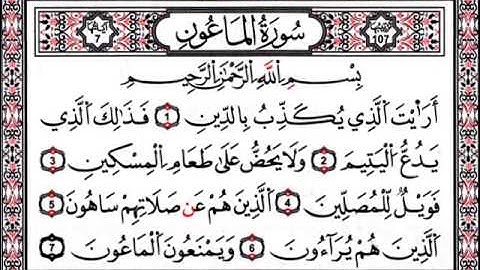 ترتيبها 107 سُورَةُ الْمَاعُونِ آياتها 7
بِسْمِ اللَّهِ الرَّحْمَٰنِ الرَّحِيمِ
أَرَٰيْتَ الَّذِي يُكَذِّبُ بِالدِّينِ 1 فَذَٰلِكَ الَّذِي
يَدُعُّ الْيَتِيمَ 2 وَلَا يَحُضُّ عَلَىٰ طَعَامِ الْمِسْكِينِ 3
فَوَيْلٌ لِّلْمُصَلِّينَ 4 الَّذِينَ هُمْ عَن صَلَاتِهِمْ سَاهُونَ 5
الَّذِينَ هُمْ يُرَآءُونَ 6 وَيَمْنَعُونَ الْمَاعُونَ 7